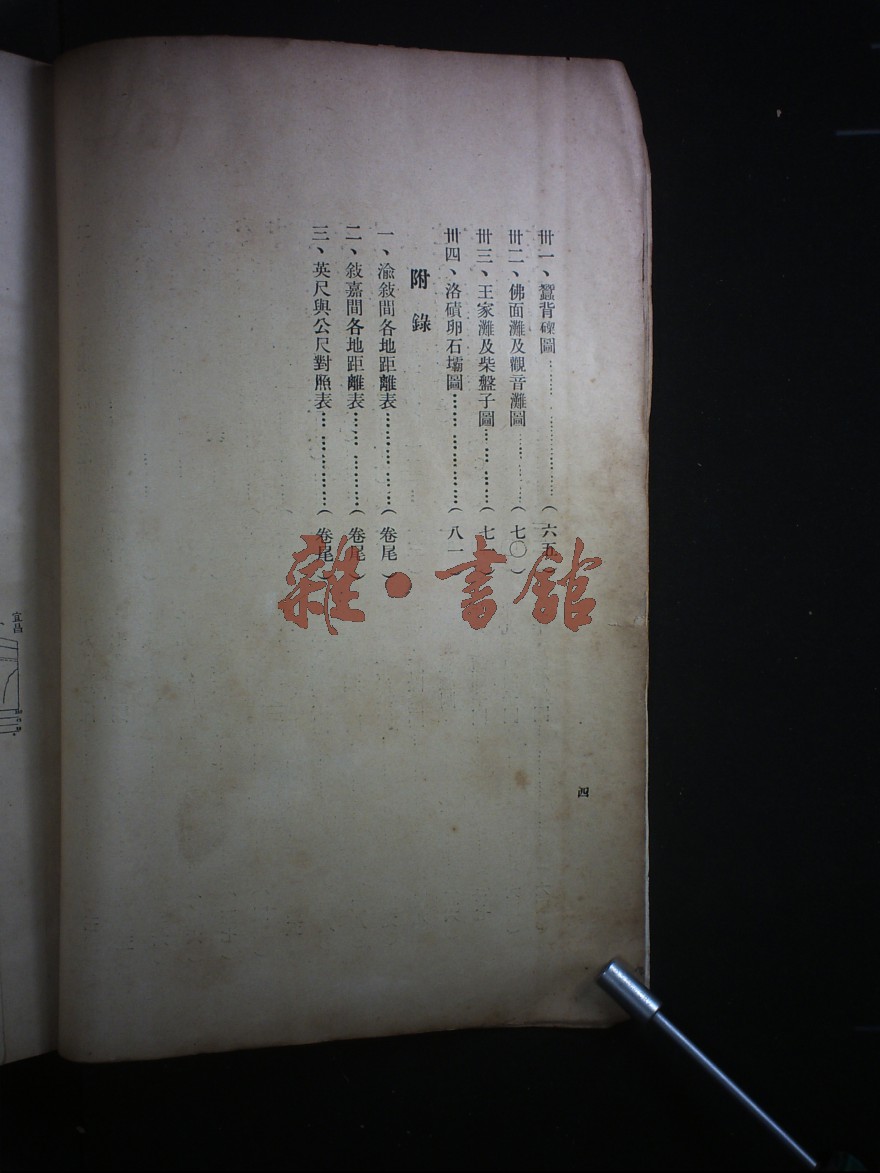 卅一、蠶背磧圖……………………(六五)
卅二、佛面灘及觀音灘圖……………(七〇)
卅三、王家灘及柴盤子圖……………(七 )
卅四、洛磧卵石壩圖…………………(八一)
附錄
一、渝敍間各地距離表………………(卷尾)
二、敍嘉間各地距離表………………(卷尾)
三、英尺與公尺對照表………………(卷尾)
四
宜昌
雜·書館